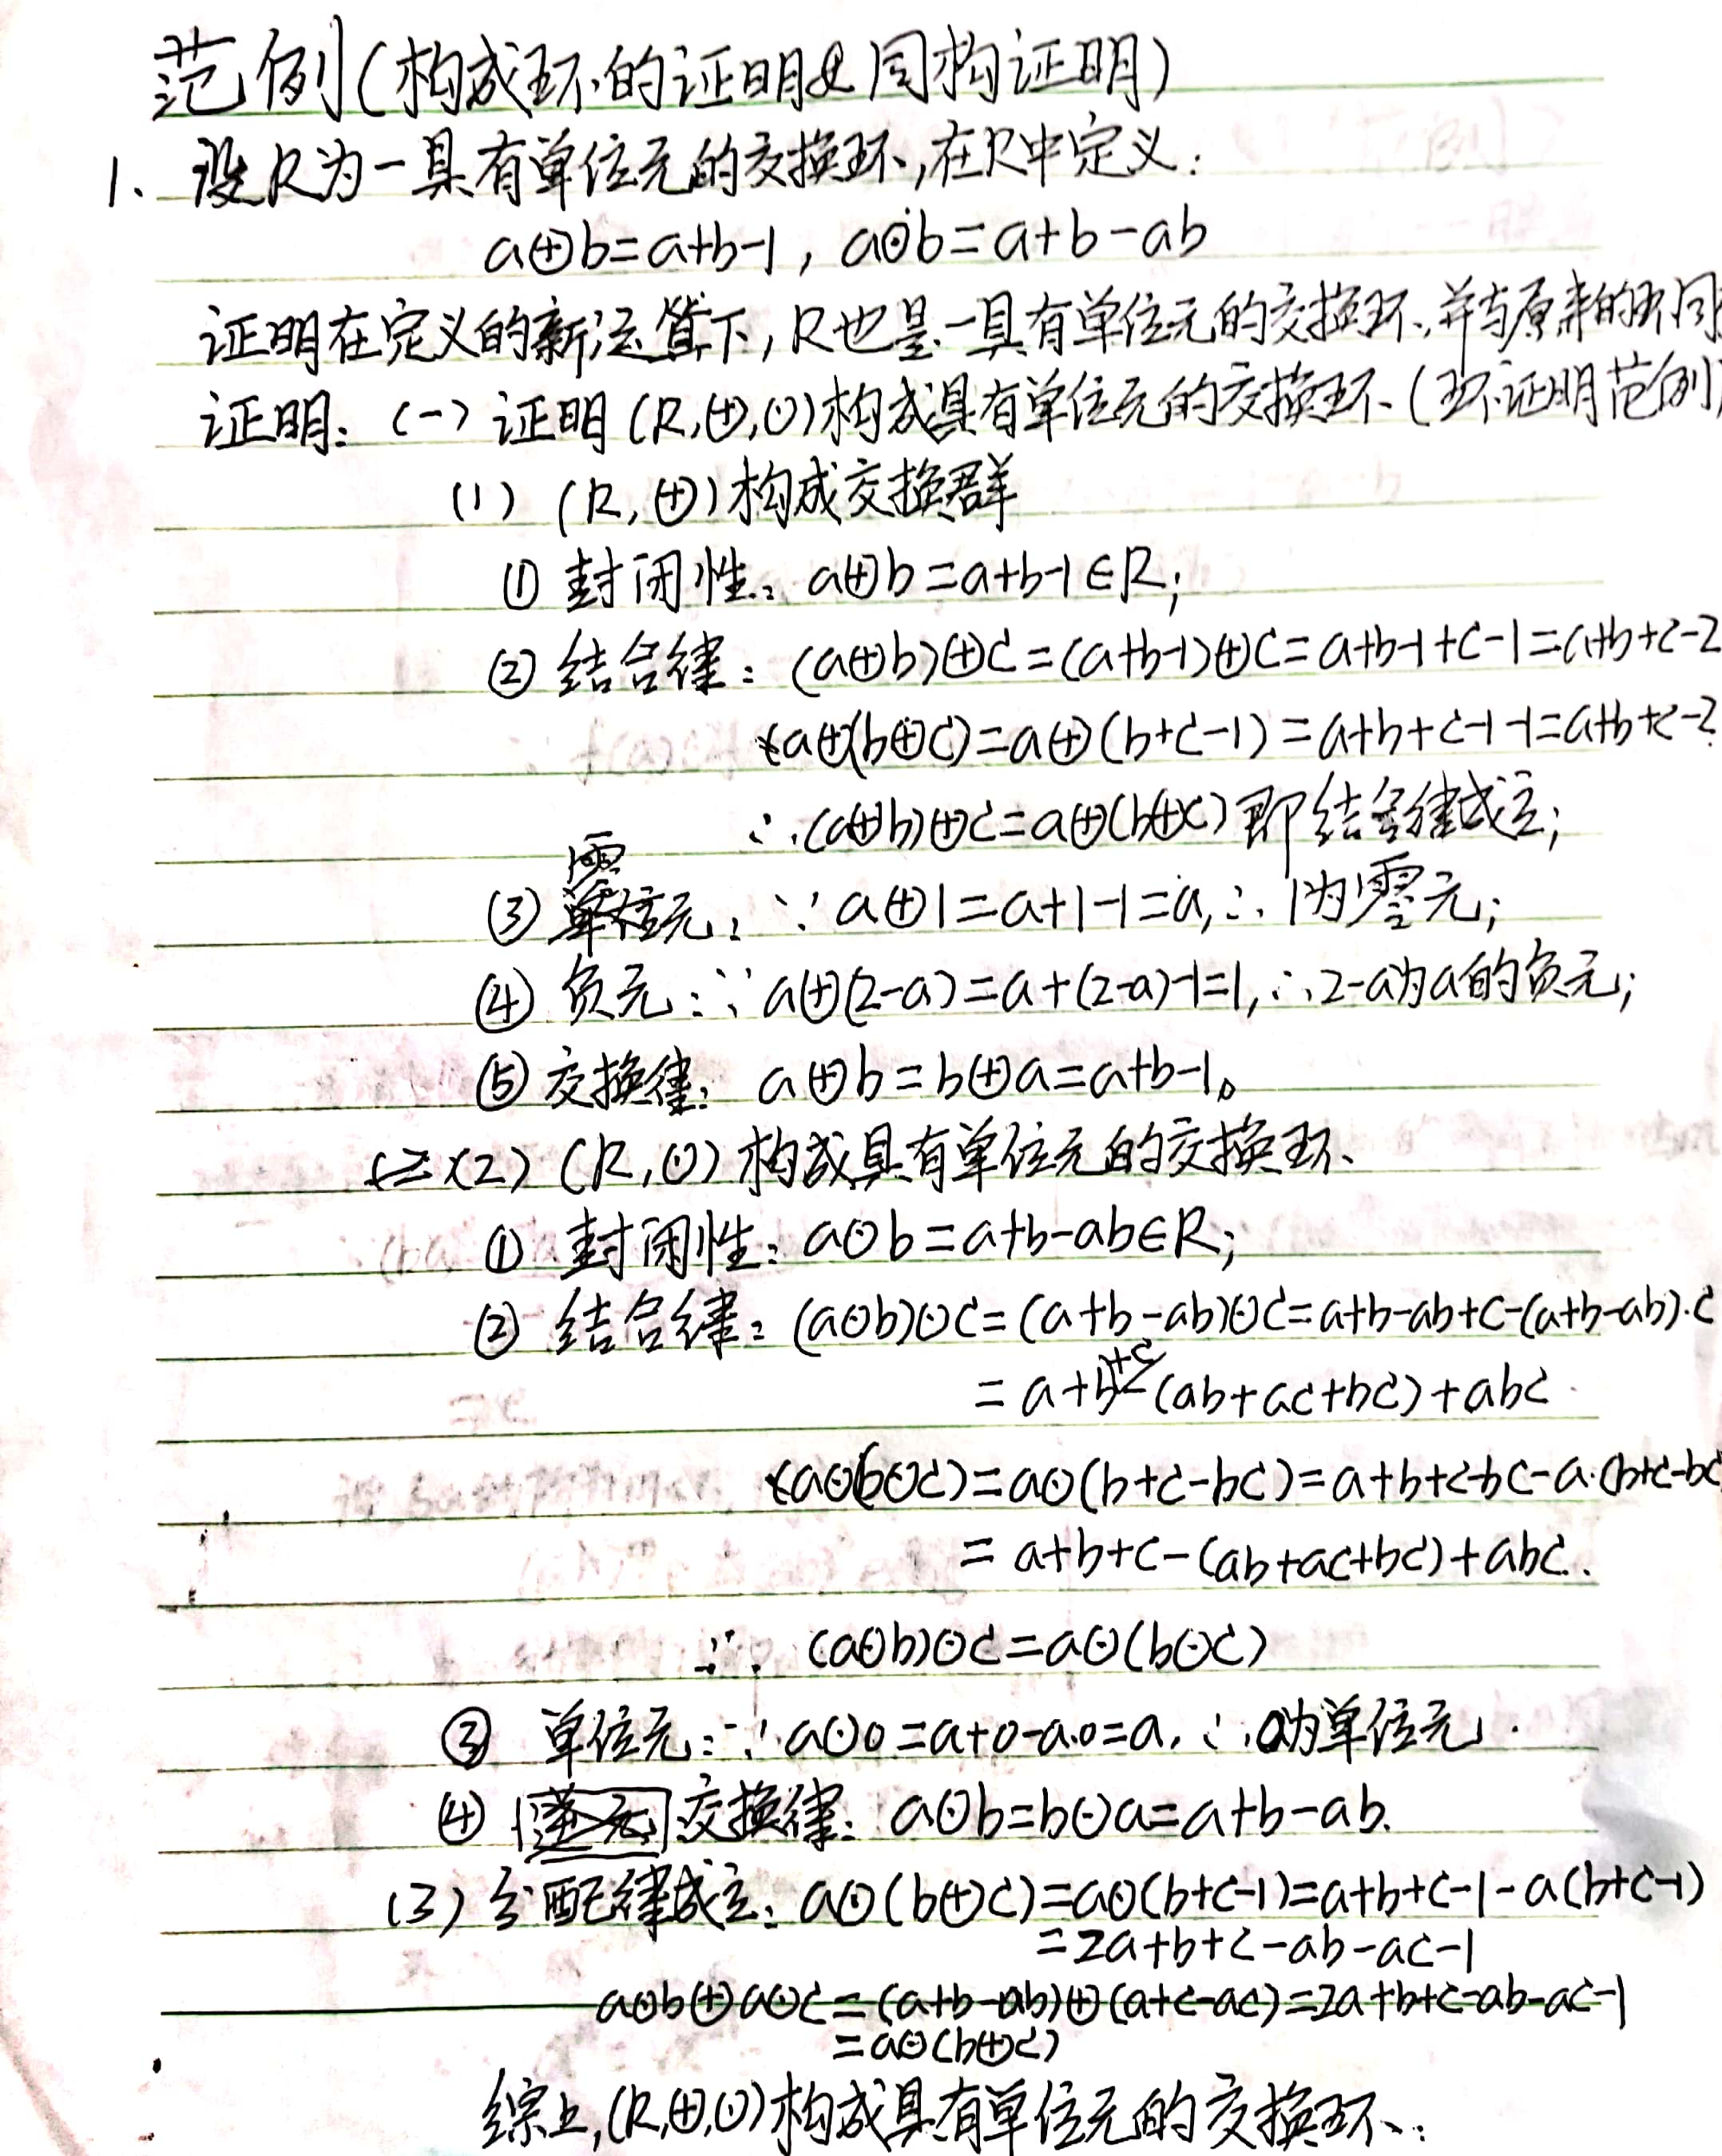 范例(构成环的证明及同构证明)
1、设R为一具有单位元的交换环,在R中定义:
a⊕b=a+b-1, a⊙b=a+b-ab
证明在定义的新运算下,R也是一具有单位元的交换环,并与原来的环同
证明:(一)证明(R,⊕,⊙)构成具有单位元的交换环(环证明范例)
(1) (R,⊕)构成交换群
① 封闭性:a⊕b=a+b-1∈R;
② 结合律:(a⊕b)⊕c=(a+b-1)⊕c=a+b-1+c-1=a+b+c-2
a⊕(b⊕c)=a⊕(b+c-1)=a+b+c-1-1=a+b+c-2
∴(a⊕b)⊕c=a⊕(b⊕c)即结合律成立;
③ 零元:∵a⊕1=a+1-1=a,∴1为零元;
④ 负元:∵a⊕(2-a)=a+(2-a)-1=1,∴2-a为a的负元;
⑤ 交换律:a⊕b=b⊕a=a+b-1。
(2) (R,⊙)构成具有单位元的交换环
① 封闭性:a⊙b=a+b-ab∈R;
② 结合律:(a⊙b)⊙c=(a+b-ab)⊙c=a+b-ab+c-(a+b-ab)·c
=a+b+c-(ab+ac+bc)+abc
a⊙(b⊙c)=a⊙(b+c-bc)=a+b+c-bc-a·(b+c-bc
=a+b+c-(ab+ac+bc)+abc.
∴ (a⊙b)⊙c=a⊙(b⊙c)
③ 单位元:∵a⊙0=a+0-a·0=a,∴0为单位元.
④ 交换律:a⊙b=b⊙a=a+b-ab.
(3) 分配律成立:a⊙(b⊕c)=a⊙(b+c-1)=a+b+c-1-a(b+c-1)
=2a+b+c-ab-ac-1
a⊙b⊕a⊙c=(a+b-ab)⊕(a+c-ac)=2a+b+c-ab-ac-1
=a⊙(b⊕c)
综上,(R,⊕,⊙)构成具有单位元的交换环.